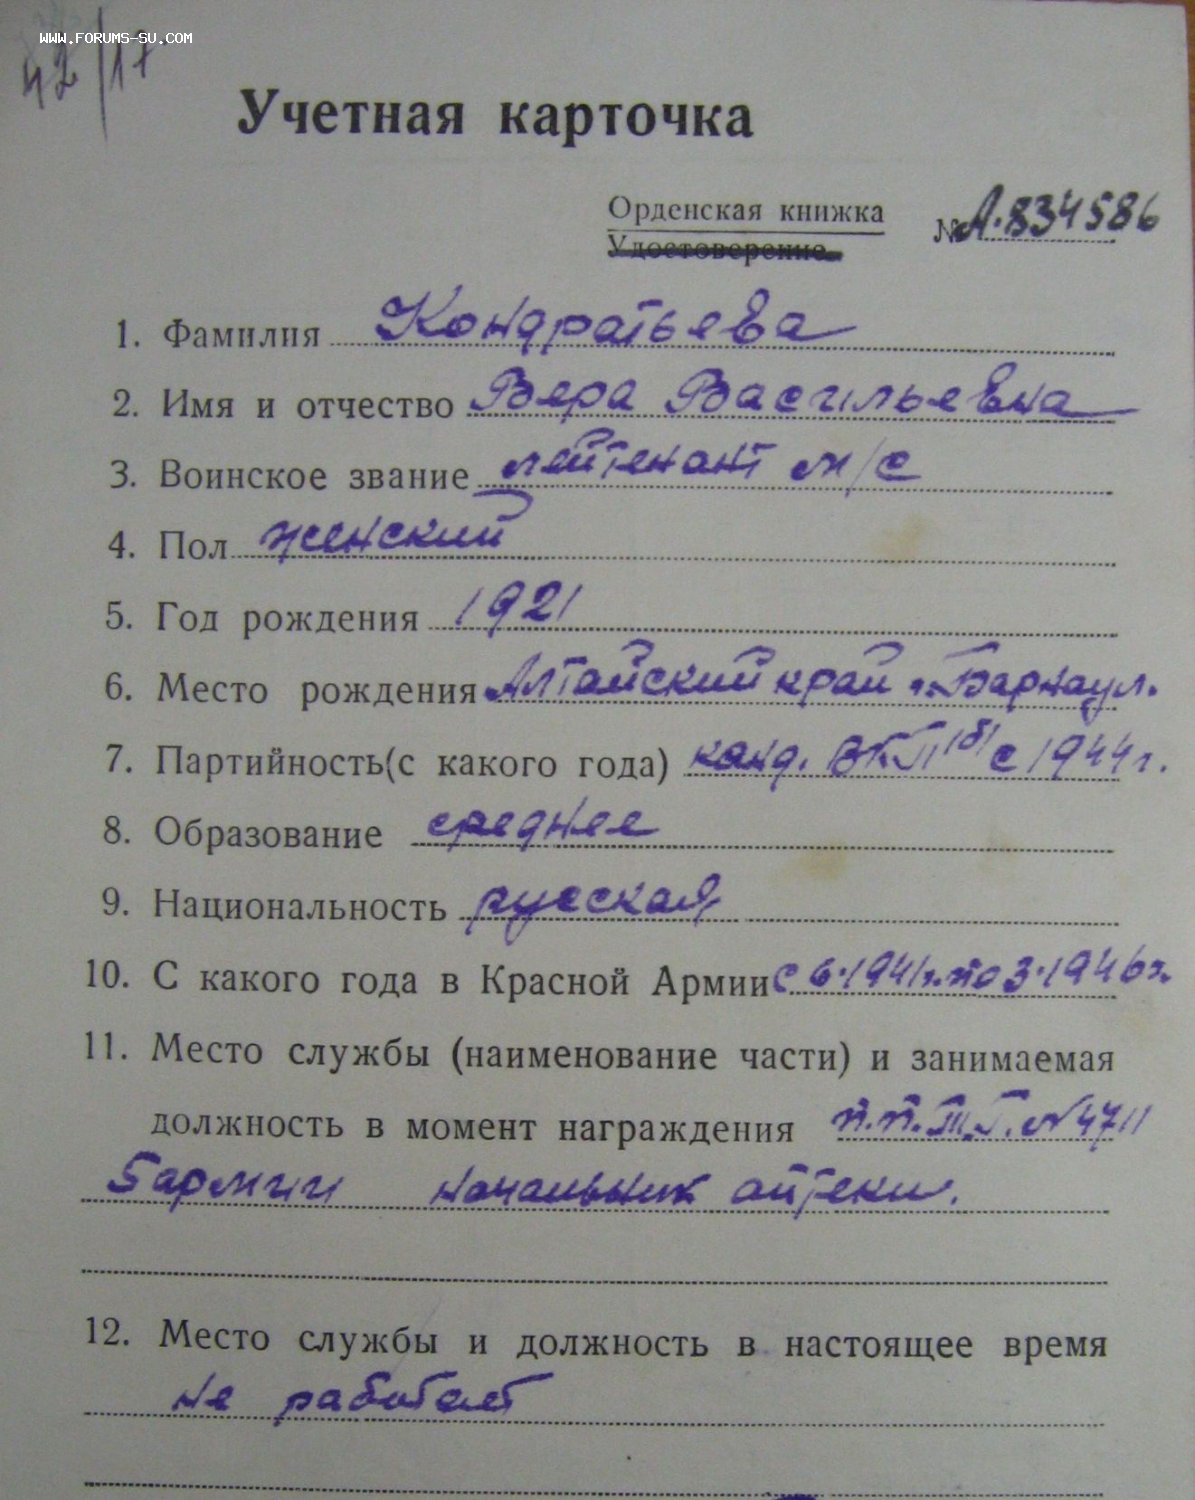 www.forums-su.com
42/17
Учетная карточка
Орденская книжка
Удостоверение
№ А.834586
1. Фамилия Кондратьева
2. Имя и отчество Вера Васильевна
3. Воинское звание лейтенант м/с
4. Пол женский
5. Год рождения 1921
6. Место рождения Алтайский край г. Барнаул.
7. Партийность(с какого года) канд. ВКП/б/ с 1944 г.
8. Образование среднее
9. Национальность русская
10. С какого года в Красной Армии с 6.1941г. по 3.1946г.
11. Место службы (наименование части) и занимаемая
должность в момент награждения п.п.Т.Г. №4711
5 армии начальник аптеки.
12. Место службы и должность в настоящее время
не работает